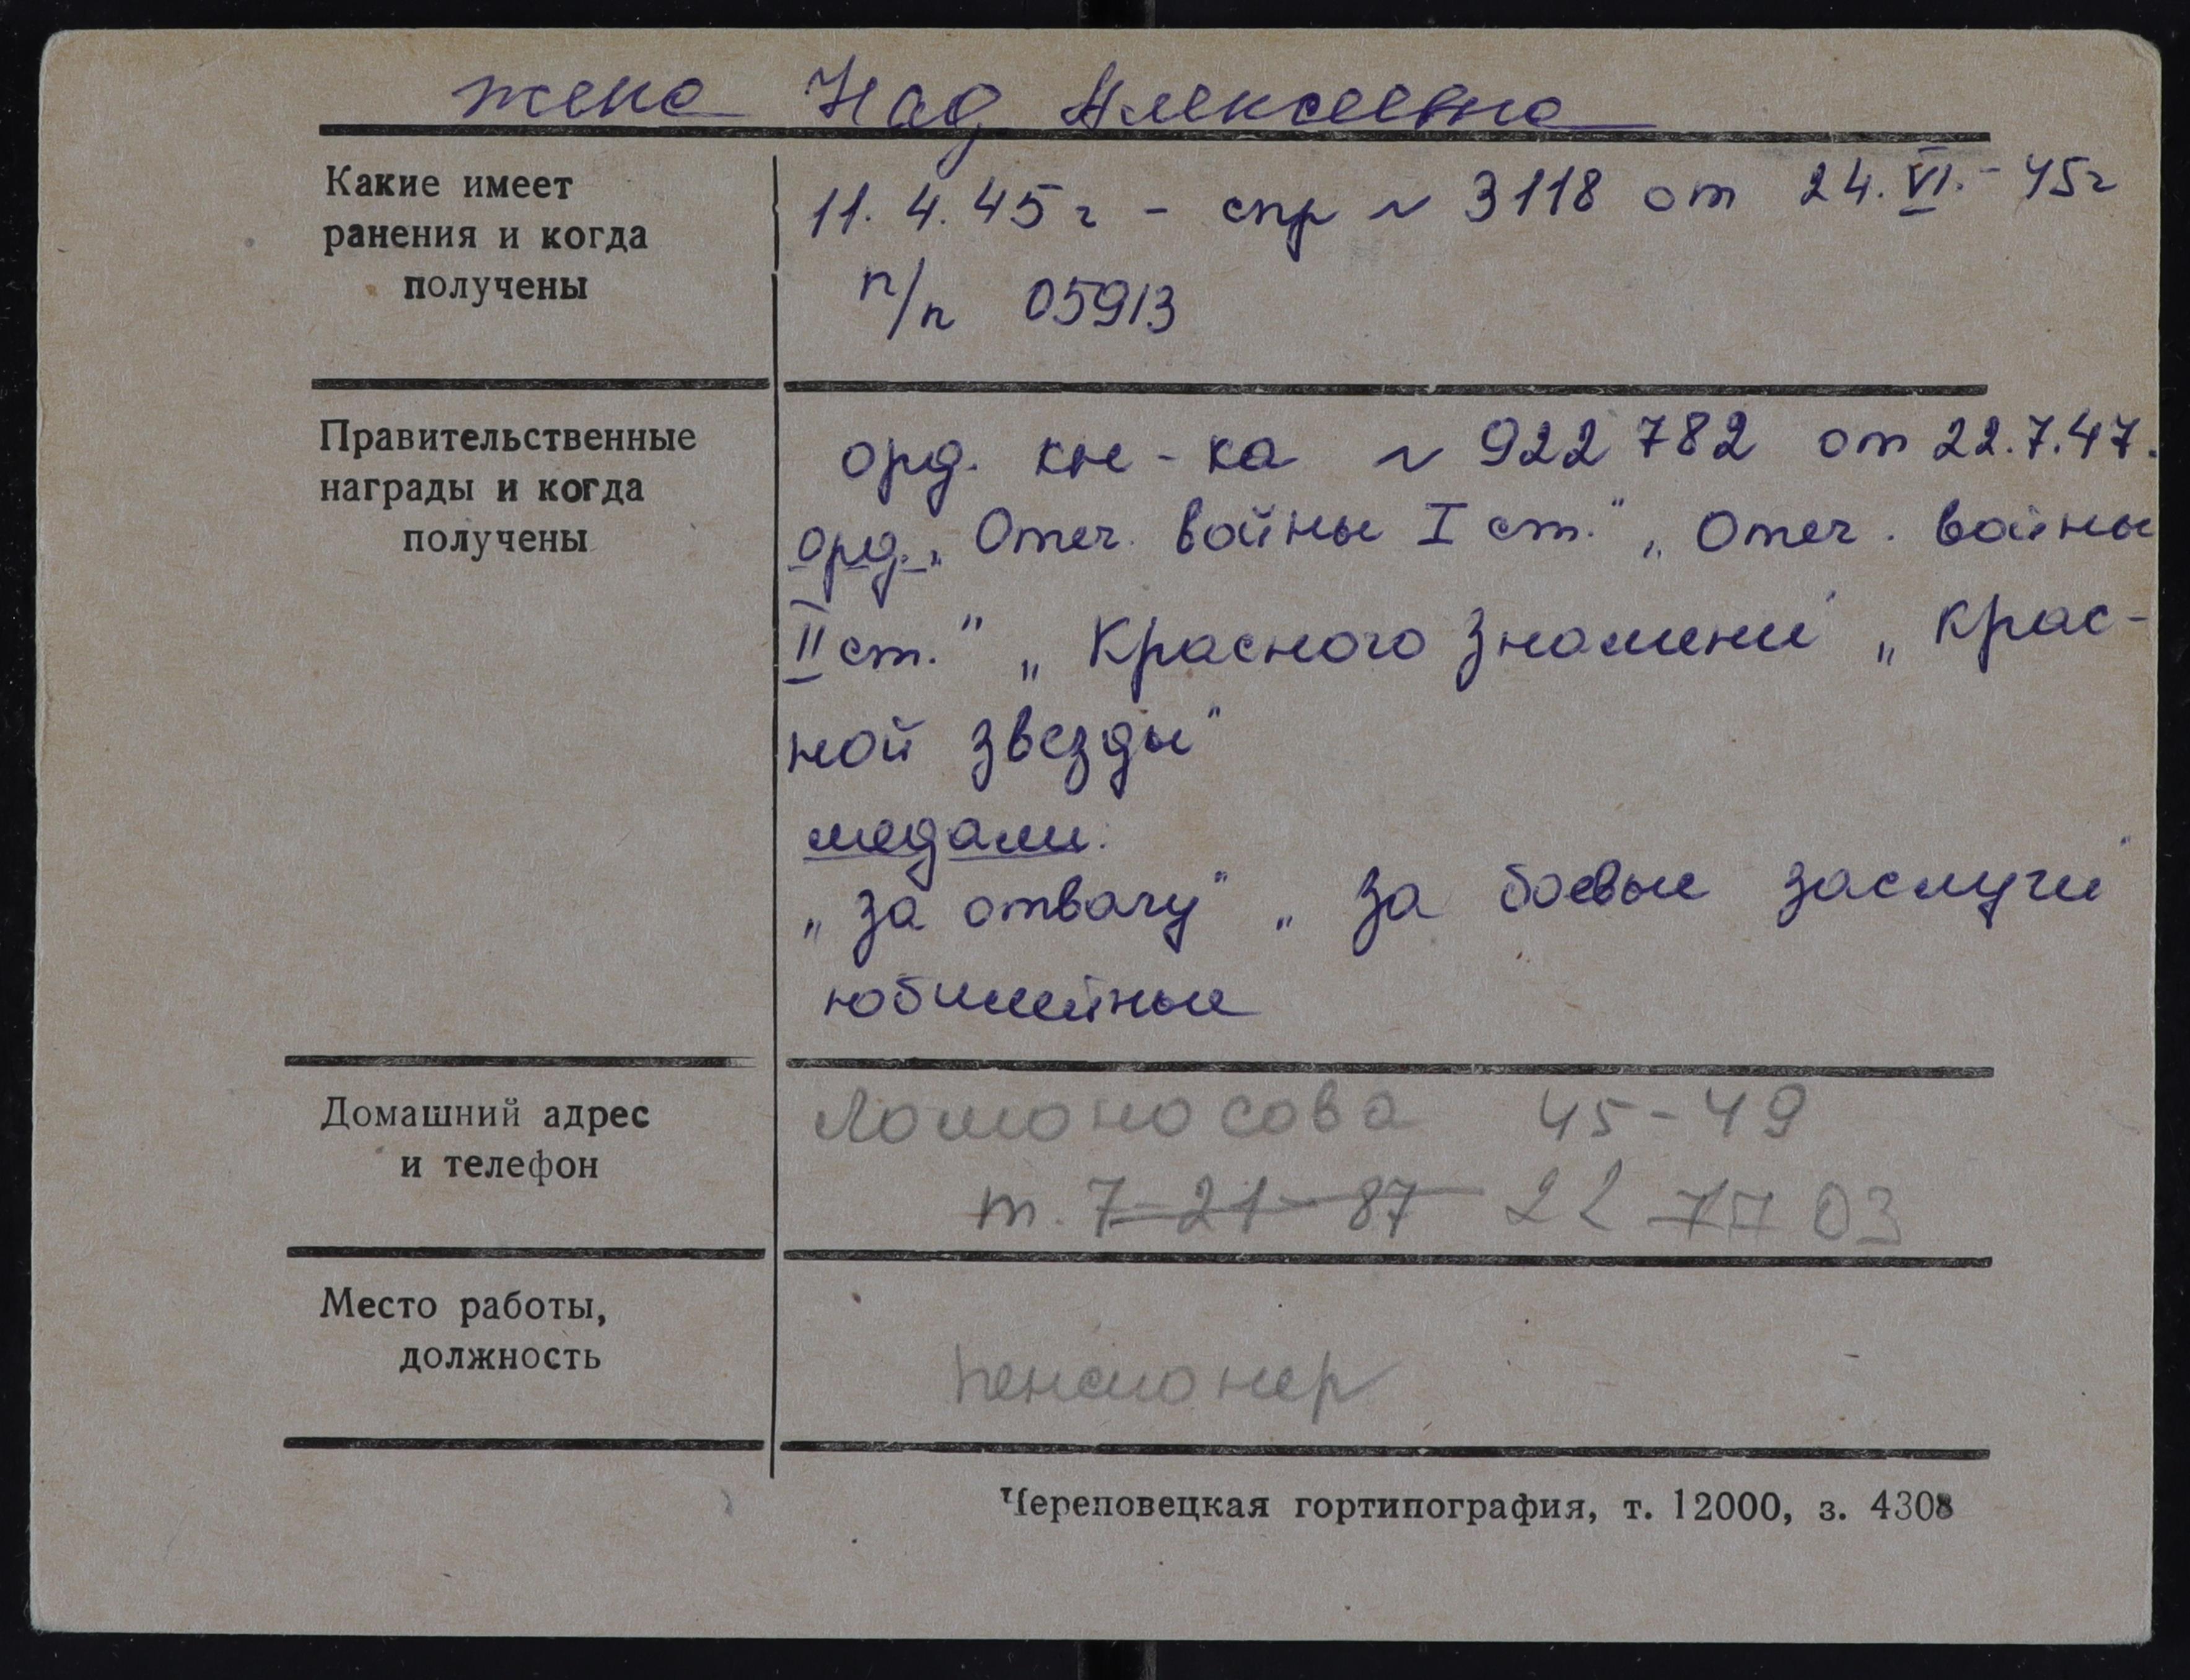 жена Над Алексеевна
Какие имеет
ранения и когда
получены
11.4.45г - спр N 3118 от 24.VI.-45г
п/п 05913
Правительственные
награды и когда
получены
орд. кн-ка N 922782 от 22.7.47.
орд. „Отеч. войны I ст." „Отеч. войны
II ст." „Красного Знамени" „Крас-
ной звезды"
медали:
„за отвагу" „за боевые заслуги"
юбилейные
Домашний адрес
и телефон
Ломоносова 45-49
т. 7-21-87 22 77 03
Место работы,
должность
пенсионер
Череповецкая гортипография, т. 12000, з. 4308